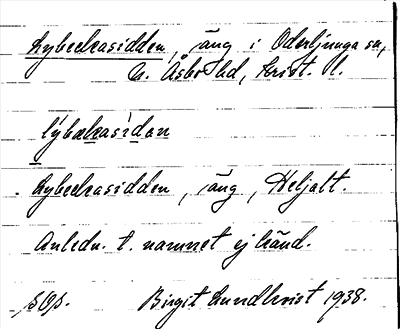 Lybeckasidden, äng i Oderljunga sn,
N. Åsbo hd, Krist. l.
lýbækasìdan
Lybeckasidden, äng, Heljalt.
Anledn. t. namnet ej känd.
Birgit Lundkvist 1938.